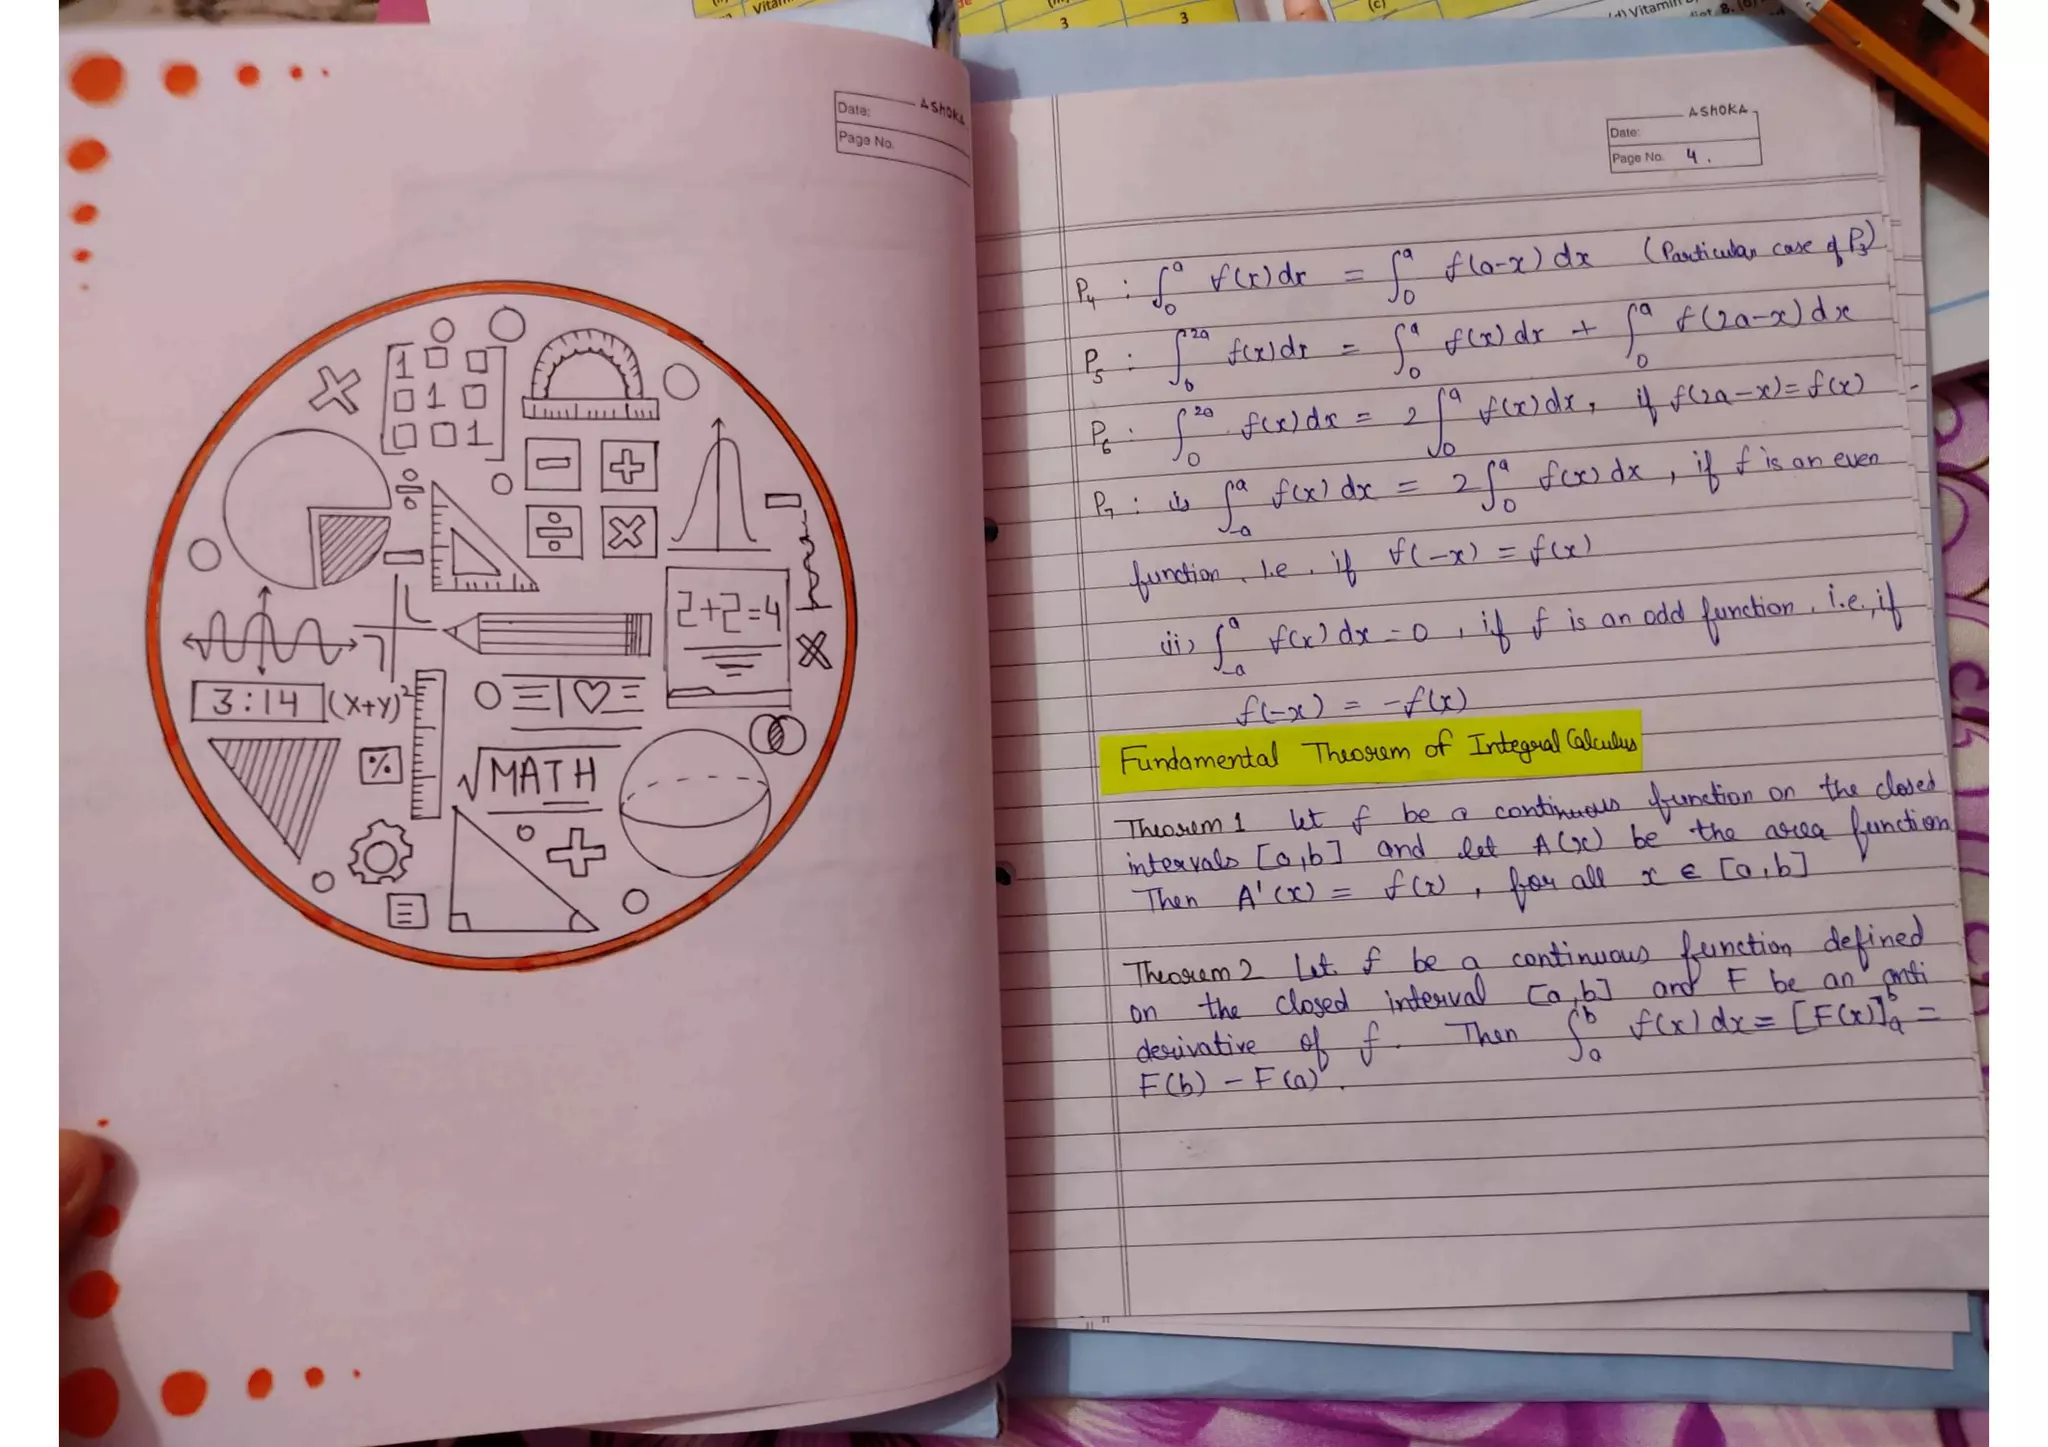 Vitam
3
3
(c)
(d) Vitamin
Date: ASHOKA
Page No.
1
1
1
2+2=4
3:14
(x+y)²
%
√MATH
ASHOKA
Date:
Page No. 4.
P₄ : ∫₀ᵃ f(x) dx = ∫₀ᵃ f(a-x) dx (Particular case of P₃)
P₅ : ∫₀²ᵃ f(x) dx = ∫₀ᵃ f(x) dx + ∫₀ᵃ f(2a-x) dx
P₆ : ∫₀²ᵃ f(x) dx = 2∫₀ᵃ f(x) dx, if f(2a-x) = f(x)
P₇ : i) ∫₋ₐᵃ f(x) dx = 2∫₀ᵃ f(x) dx, if f is an even
function, i.e. if f(-x) = f(x)
ii) ∫₋ₐᵃ f(x) dx = 0, if f is an odd function, i.e., if
f(-x) = -f(x)
Fundamental Theorem of Integral Calculus
Theorem 1 let f be a continuous function on the closed
intervals [a,b] and let A(x) be the area function
Then A'(x) = f(x), for all x ∈ [a,b]
Theorem 2 Let f be a continuous function defined
on the closed interval [a,b] and F be an anti
derivative of f. Then ∫ₐᵇ f(x) dx = [F(x)]ₐᵇ =
F(b) - F(a).